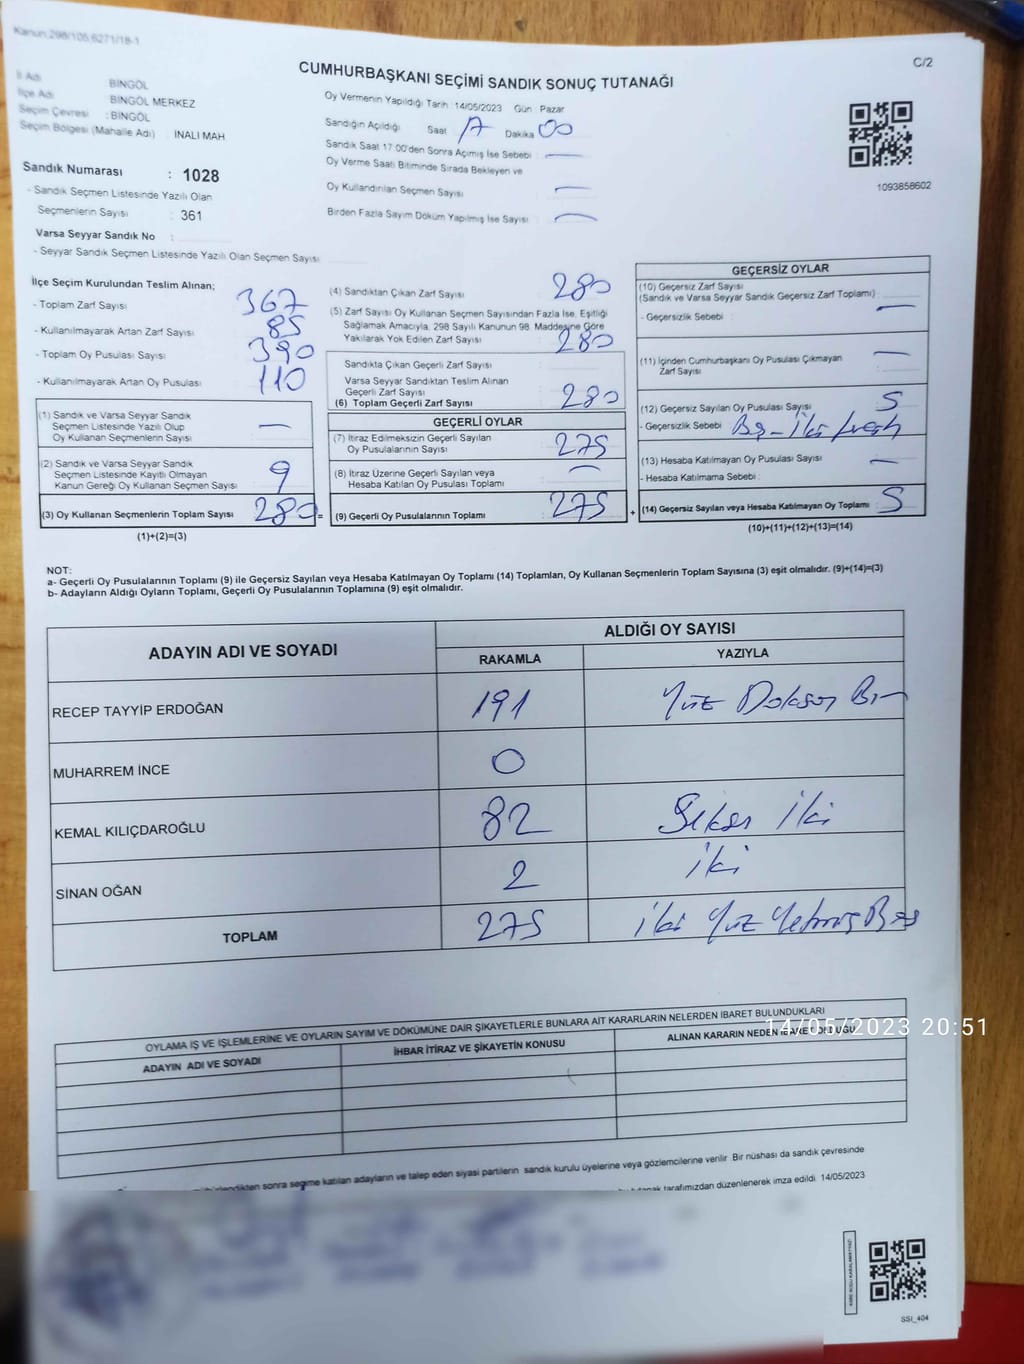 Kanun;298/105,6271/18-1
C/2
CUMHURBAŞKANI SEÇİMİ SANDIK SONUÇ TUTANAĞI
İl Adı BİNGÖL
İlçe Adı BİNGÖL MERKEZ
Seçim Çevresi : BİNGÖL
Seçim Bölgesi (Mahalle Adı) İNALI MAH
Sandık Numarası : 1028
- Sandık Seçmen Listesinde Yazılı Olan
Seçmenlerin Sayısı : 361
Varsa Seyyar Sandık No :
- Seyyar Sandık Seçmen Listesinde Yazılı Olan Seçmen Sayısı
Oy Vermenin Yapıldığı Tarih : 14/05/2023 Gün : Pazar
Sandığın Açıldığı Saat 17 Dakika 00
Sandık Saat 17:00'den Sonra Açımış İse Sebebi : —
Oy Verme Saati Bitiminde Sırada Bekleyen ve
Oy Kullandırılan Seçmen Sayısı : —
Birden Fazla Sayım Döküm Yapılmış İse Sayısı : —
1093858602
İlçe Seçim Kurulundan Teslim Alınan;
- Toplam Zarf Sayısı 367
- Kullanılmayarak Artan Zarf Sayısı 85
- Toplam Oy Pusulası Sayısı 390
- Kullanılmayarak Artan Oy Pusulası 110
(1) Sandık ve Varsa Seyyar Sandık
Seçmen Listesinde Yazılı Olup
Oy Kullanan Seçmenlerin Sayısı —
(2) Sandık ve Varsa Seyyar Sandık
Seçmen Listesinde Kayıtlı Olmayan
Kanun Gereği Oy Kullanan Seçmen Sayısı 9
(3) Oy Kullanan Seçmenlerin Toplam Sayısı 280 =
(1)+(2)=(3)
(4) Sandıktan Çıkan Zarf Sayısı 280
(5) Zarf Sayısı Oy Kullanan Seçmen Sayısından Fazla İse, Eşitliği
Sağlamak Amacıyla, 298 Sayılı Kanunun 98. Maddesine Göre
Yakılarak Yok Edilen Zarf Sayısı 280
Sandıkta Çıkan Geçerli Zarf Sayısı
Varsa Seyyar Sandıktan Teslim Alınan
Geçerli Zarf Sayısı
(6) Toplam Geçerli Zarf Sayısı 280
GEÇERLİ OYLAR
(7) İtiraz Edilmeksizin Geçerli Sayılan
Oy Pusulalarının Sayısı 275
(8) İtiraz Üzerine Geçerli Sayılan veya
Hesaba Katılan Oy Pusulası Toplamı —
(9) Geçerli Oy Pusulalarının Toplamı 275 +
GEÇERSİZ OYLAR
(10) Geçersiz Zarf Sayısı
(Sandık ve Varsa Seyyar Sandık Geçersiz Zarf Toplamı)
- Geçersizlik Sebebi : —
(11) İçinden Cumhurbaşkanı Oy Pusulası Çıkmayan
Zarf Sayısı —
(12) Geçersiz Sayılan Oy Pusulası Sayısı 5
- Geçersizlik Sebebi
(13) Hesaba Katılmayan Oy Pusulası Sayısı —
- Hesaba Katılmama Sebebi :
(14) Geçersiz Sayılan veya Hesaba Katılmayan Oy Toplamı 5
(10)+(11)+(12)+(13)=(14)
NOT:
a- Geçerli Oy Pusulalarının Toplamı (9) ile Geçersiz Sayılan veya Hesaba Katılmayan Oy Toplamı (14) Toplamları, Oy Kullanan Seçmenlerin Toplam Sayısına (3) eşit olmalıdır. (9)+(14)=(3)
b- Adayların Aldığı Oyların Toplamı, Geçerli Oy Pusulalarının Toplamına (9) eşit olmalıdır.
ADAYIN ADI VE SOYADI ALDIĞI OY SAYISI
RAKAMLA YAZIYLA
RECEP TAYYİP ERDOĞAN 191 Yüz Doksan Bir
MUHARREM İNCE 0
KEMAL KILIÇDAROĞLU 82 Seksen İki
SİNAN OĞAN 2 İki
TOPLAM 275 İki Yüz Yetmiş Beş
OYLAMA İŞ VE İŞLEMLERİNE VE OYLARIN SAYIM VE DÖKÜMÜNE DAİR ŞİKAYETLERLE BUNLARA AİT KARARLARIN NELERDEN İBARET BULUNDUKLARI
14/05/2023 20:51
ADAYIN ADI VE SOYADI İHBAR İTİRAZ VE ŞİKAYETİN KONUSU ALINAN KARARIN NEDEN İBARET OLDUĞU
sonra seçime katılan adayların ve talep eden siyasi partilerin sandık kurulu üyelerine veya gözlemcilerine verilir. Bir nüshası da sandık çevresinde
tutanak tarafımızdan düzenlenerek imza edildi. 14/05/2023
SSI_404